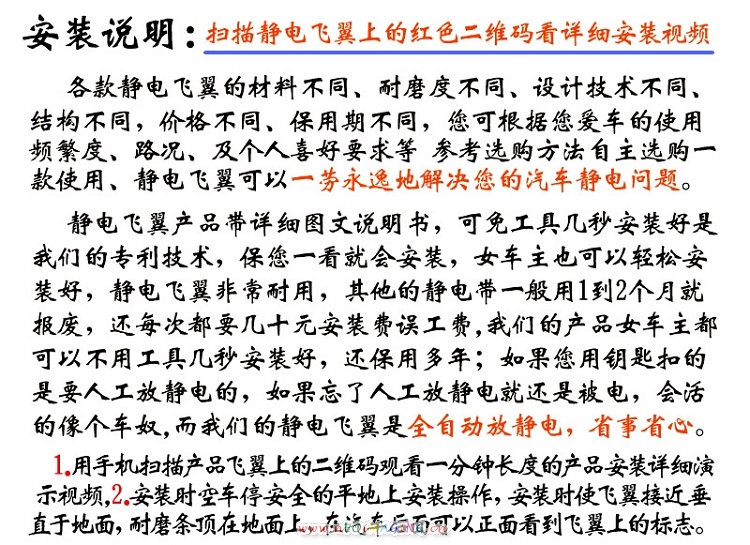 安装说明：扫描静电飞翼上的红色二维码看详细安装视频
各款静电飞翼的材料不同、耐磨度不同、设计技术不同、
结构不同，价格不同、保用期不同，您可根据您爱车的使用
频繁度、路况、及个人喜好要求等 参考选购方法自主选购一
款使用、静电飞翼可以一劳永逸地解决您的汽车静电问题。
静电飞翼产品带详细图文说明书，可免工具几秒安装好是
我们的专利技术，保您一看就会安装，女车主也可以轻松安
装好，静电飞翼非常耐用，其他的静电带一般用1到2个月就
报废，还每次都要几十元安装费误工费,我们的产品女车主都
可以不用工具几秒安装好，还保用多年；如果您用钥匙扣的
是要人工放静电的，如果忘了人工放静电就还是被电，会活
的像个车奴,而我们的静电飞翼是全自动放静电，省事省心。
1.用手机扫描产品飞翼上的二维码观看一分钟长度的产品安装详细演
示视频,2.安装时空车停安全的平地上安装操作，安装时使飞翼接近垂
直于地面，耐磨条顶在地面上。在汽车后面可以正面看到飞翼上的标志。